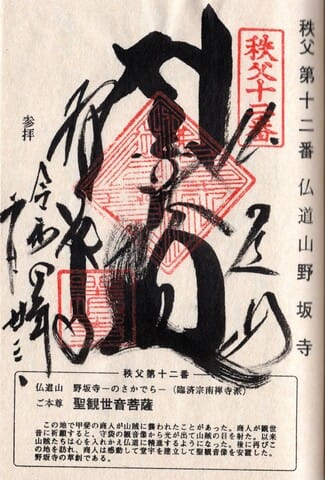 秩父 第十二番 仏道山 野坂寺
秩父十二番
仏道山
野坂寺
参拝
令和四年
秩父第十二番
仏道山 野坂寺―のさかでら―(臨済宗南禅寺派)
ご本尊 聖観世音菩薩
この地で甲斐の商人が山賊に襲われたことがあった。商人が観世
音に祈願すると、守袋の観音像から光が出て山賊の目を射
山賊たちは心を入れかえ仏道に精進するようになった。
の地を訪れ、商人は感動して堂宇を建立して聖観音像を安置した。
野坂寺の草創である。